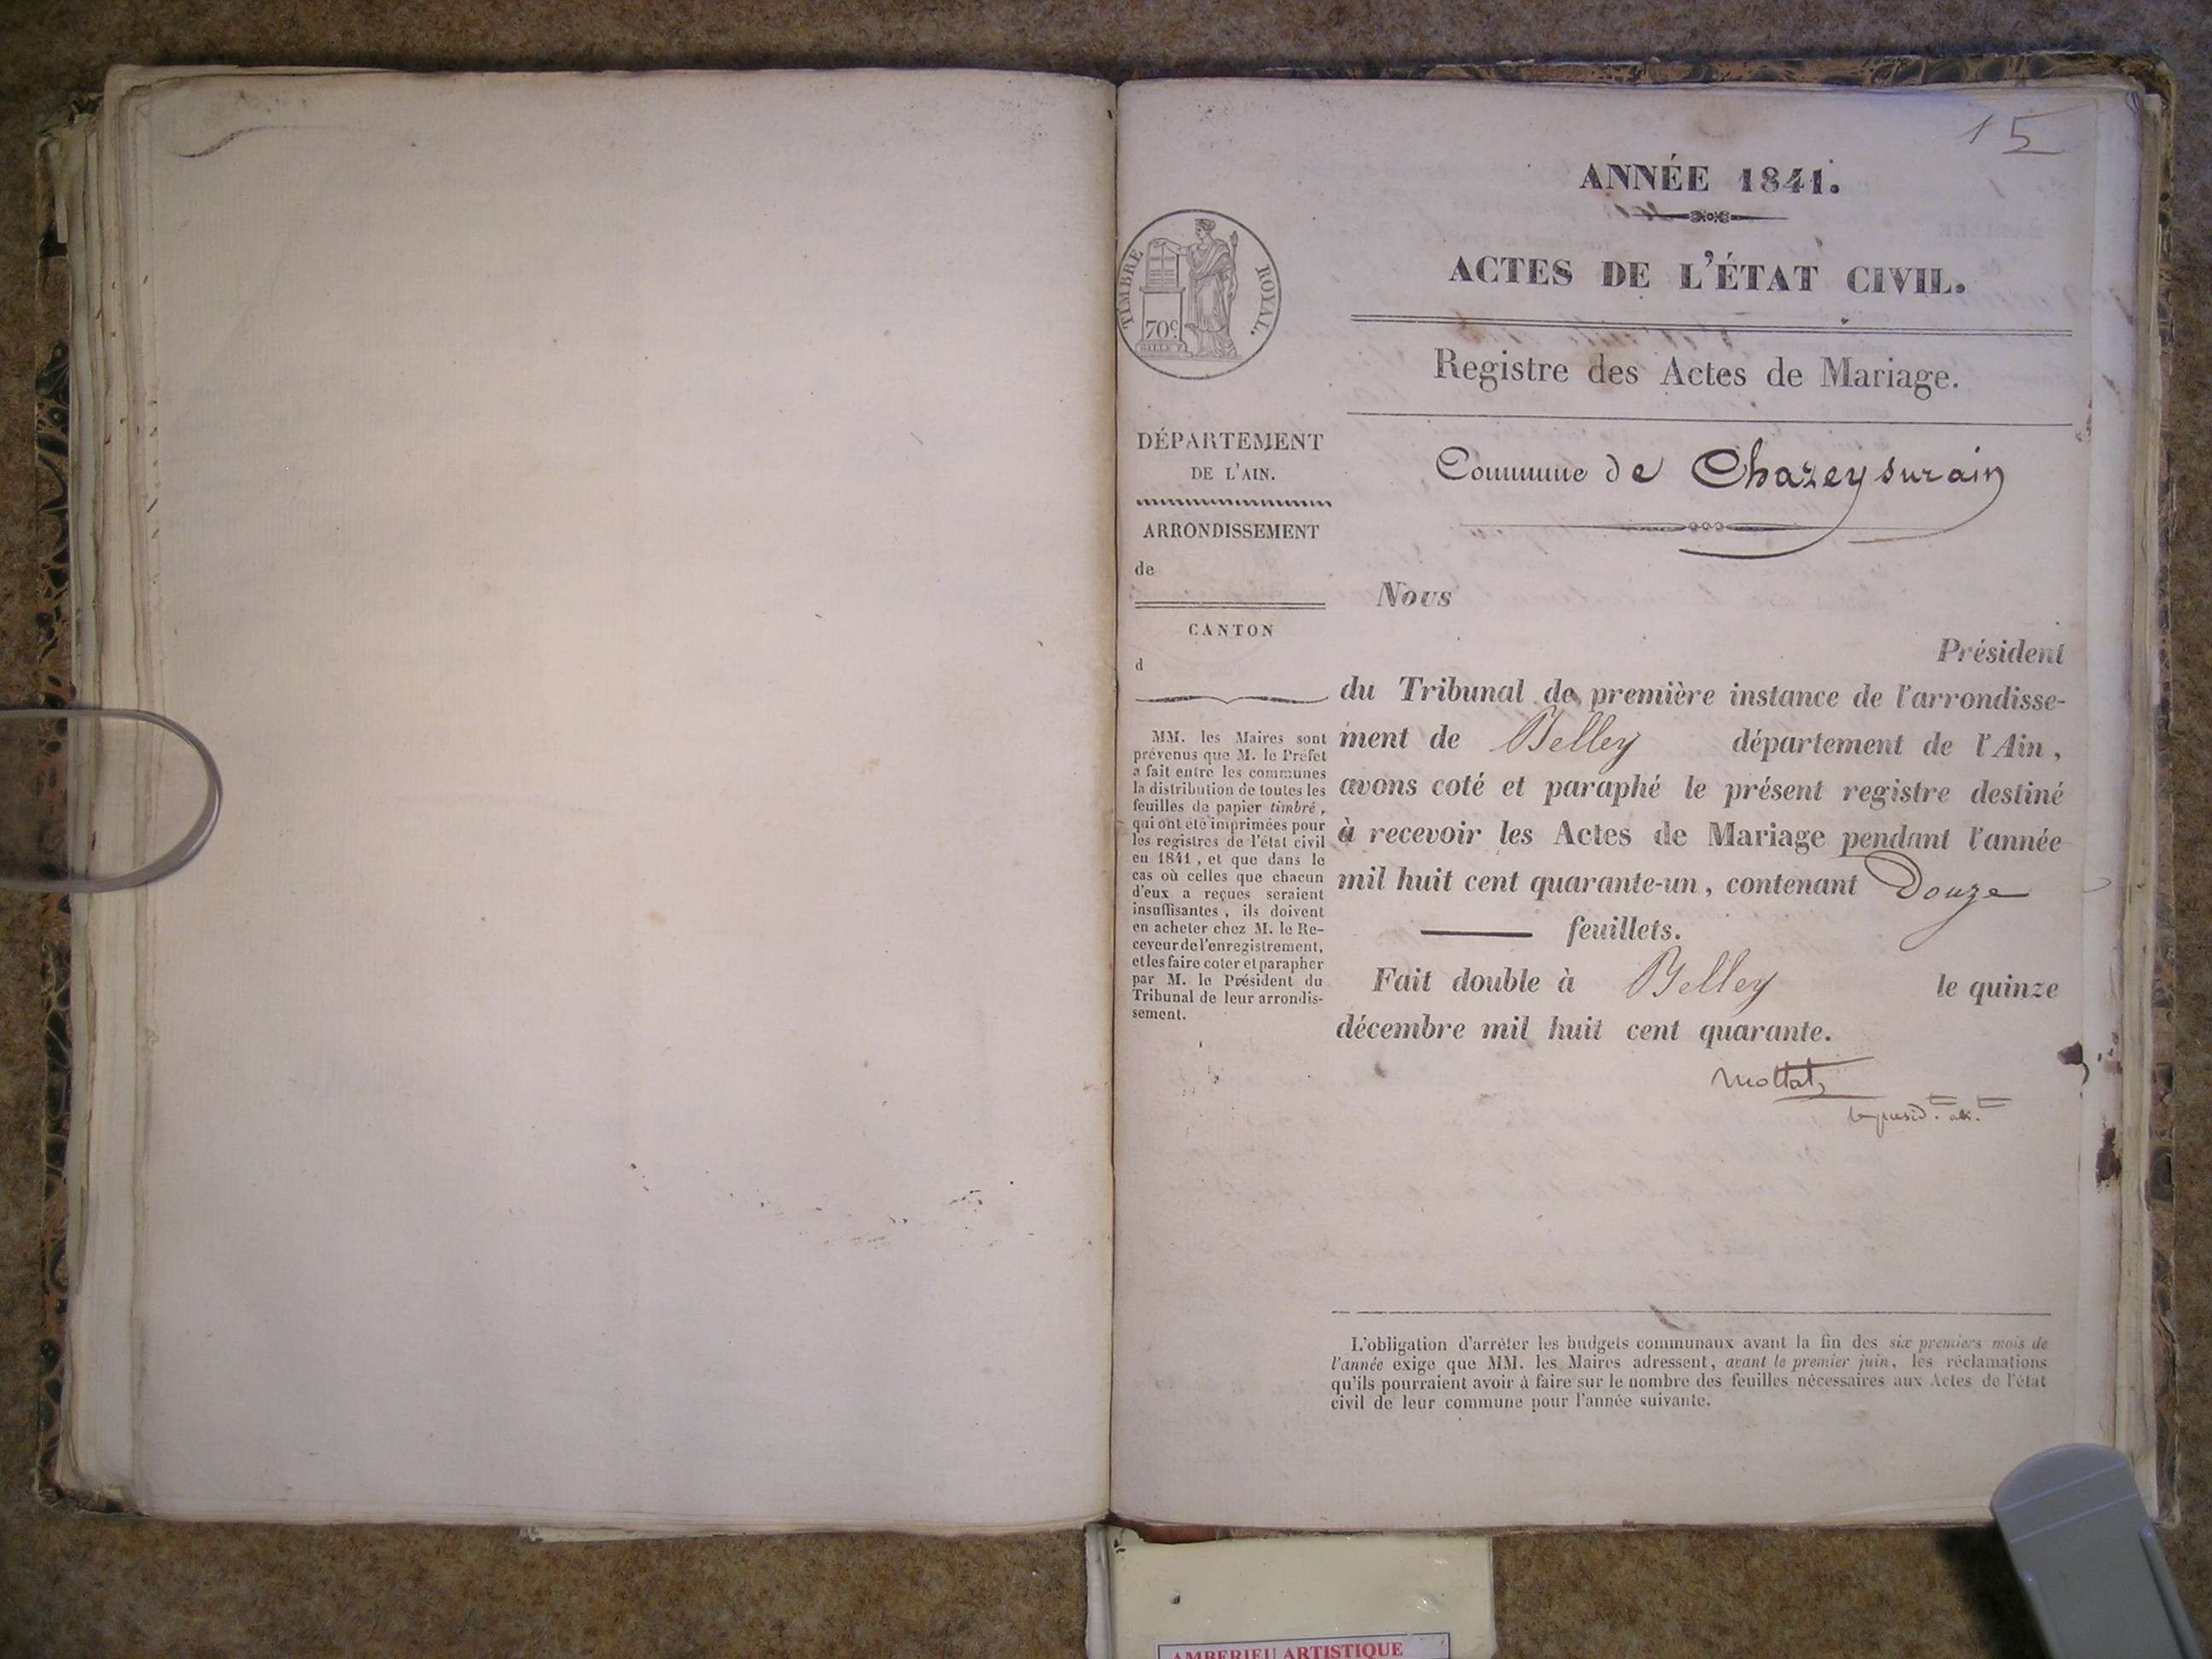 15
ANNÉE 1841.
ACTES DE L'ÉTAT CIVIL.
TIMBRE ROYAL.
70c
Registre des Actes de Mariage.
DÉPARTEMENT
DE L'AIN.
ARRONDISSEMENT
de
CANTON
d
MM. les Maires sont
prévenus que M. le Préfet
a fait entre les communes
la distribution de toutes les
feuilles de papier timbré,
qui ont été imprimées pour
les registres de l'état civil
en 1841, et que dans le
cas où celles que chacun
d'eux a reçues seraient
insuffisantes, ils doivent
en acheter chez M. le Re-
ceveur de l'enregistrement,
et les faire coter et parapher
par M. le Président du
Tribunal de leur arrondis-
sement.
Commune de Chazey sur ain
Nous
Président
du Tribunal de première instance de l'arrondisse-
ment de Belley département de l'Ain,
avons coté et paraphé le présent registre destiné
à recevoir les Actes de Mariage pendant l'année
mil huit cent quarante-un, contenant Douze
feuillets.
Fait double à Belley le quinze
décembre mil huit cent quarante.
L'obligation d'arrêter les budgets communaux avant la fin des six premiers mois de
l'année exige que MM. les Maires adressent, avant le premier juin, les réclamations
qu'ils pourraient avoir à faire sur le nombre des feuilles nécessaires aux Actes de l'état
civil de leur commune pour l'année suivante.
AMBERIEU ARTISTIQUE